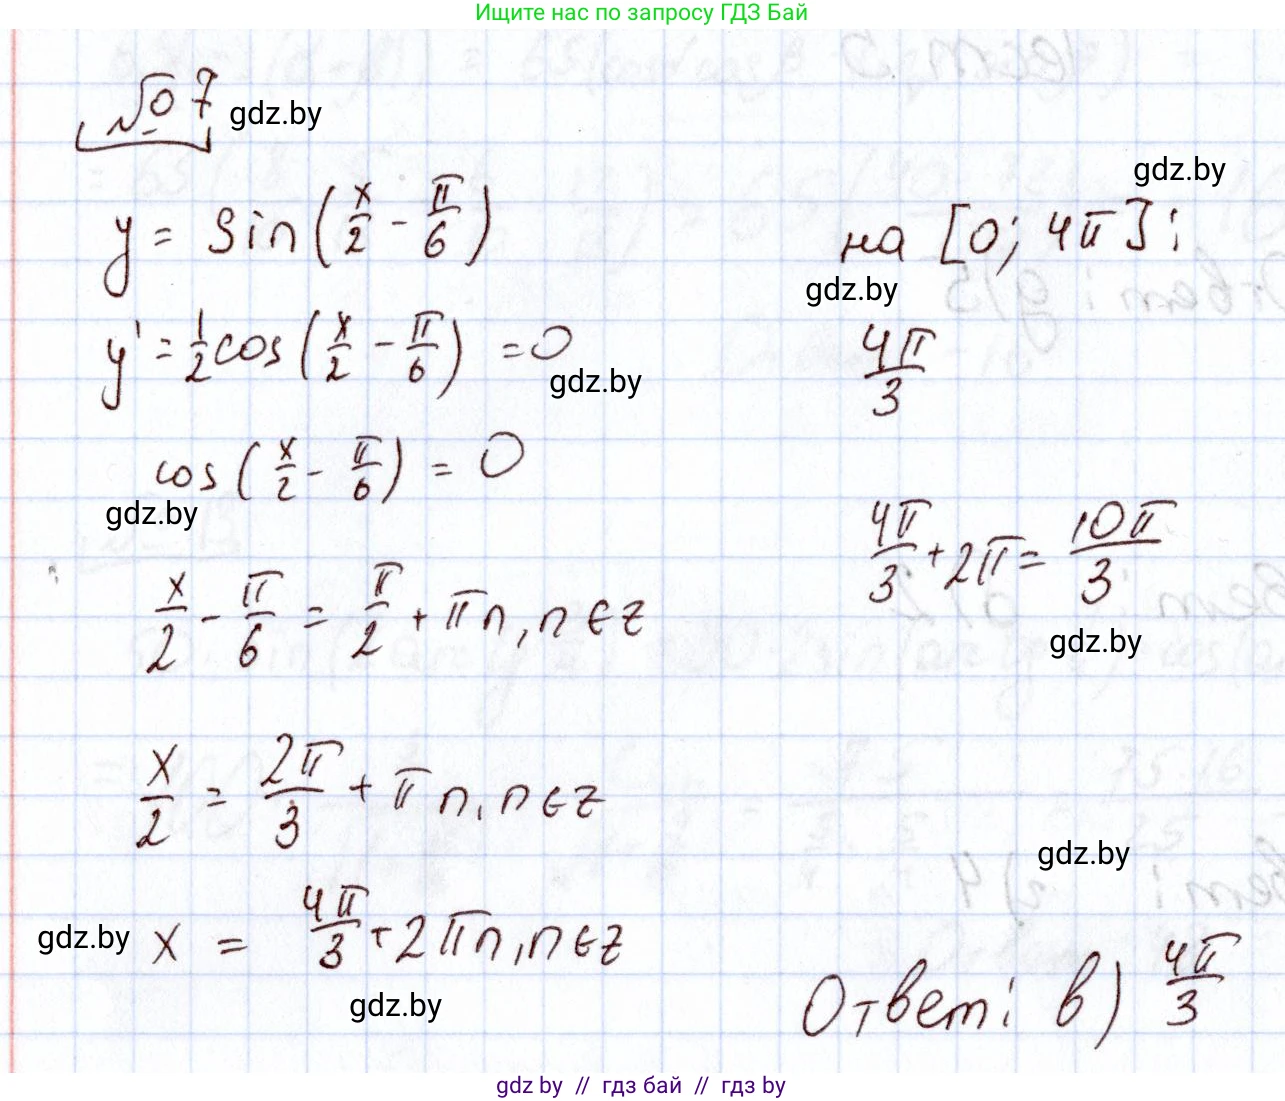 Ищите нас по запросу ГДЗ Бай
№ 7 gdz.by
gdz.by
y = sin(x/2 - π/6)
на [0; 4π]:
gdz.by
y' = 1/2 cos(x/2 - π/6) = 0
gdz.by
4π/3
cos(x/2 - π/6) = 0
gdz.by
4π/3 + 2π = 10π/3
x/2 - π/6 = π/2 + πn, n∈z
gdz.by
x/2 = 2π/3 + πn, n∈z
gdz.by
gdz.by x = 4π/3 + 2πn, n∈z
gdz.by
Ответ: в) 4π/3
gdz by // гдз бай // гдз by